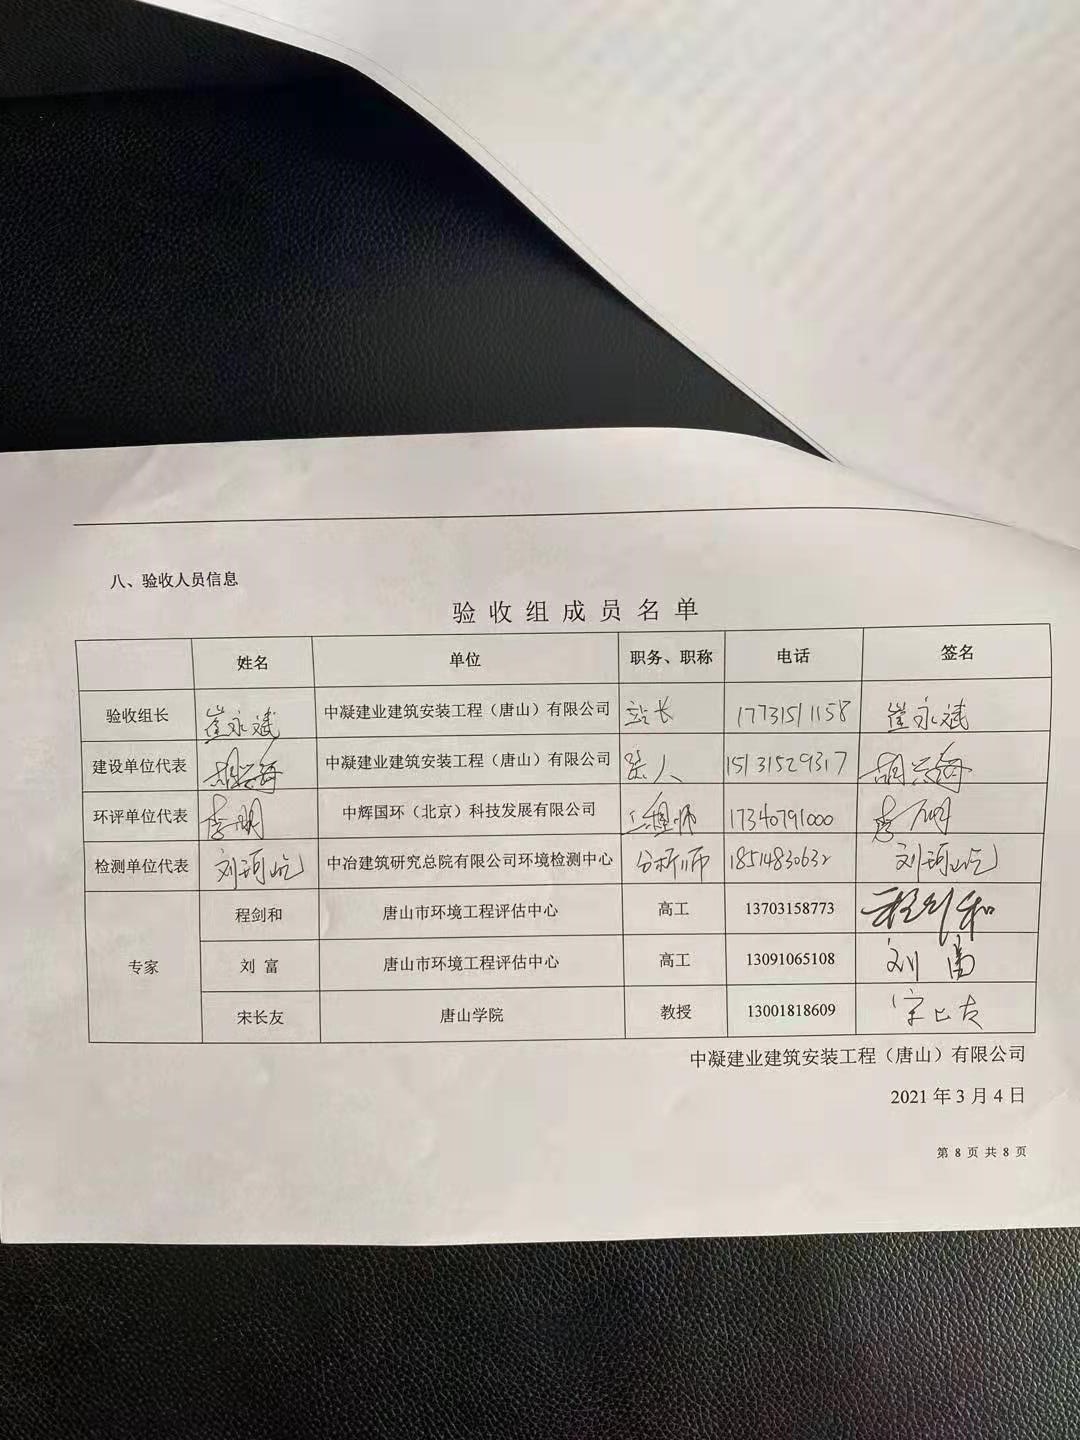 八、验收人员信息
验收组成员名单
姓名 单位 职务、职称 电话 签名
验收组长 崔永斌 中凝建业建筑安装工程（唐山）有限公司 站长 17731511158 崔永斌
建设单位代表 中凝建业建筑安装工程（唐山）有限公司 15131529317
环评单位代表 李明 中辉国环（北京）科技发展有限公司 工程师 17340791000 李明
检测单位代表 刘珂屹 中冶建筑研究总院有限公司环境检测中心 分析师 18514830632 刘珂屹
专家 程剑和 唐山市环境工程评估中心 高工 13703158773 程剑和
刘 富 唐山市环境工程评估中心 高工 13091065108 刘富
宋长友 唐山学院 教授 13001818609 宋长友
中凝建业建筑安装工程（唐山）有限公司
2021 年 3 月 4 日
第 8 页 共 8 页